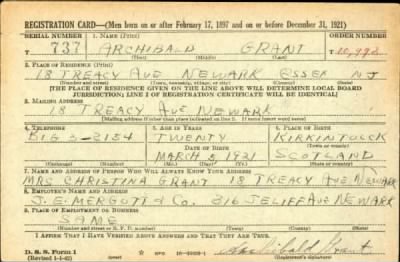 REGISTRATION CARD—(Men born on or after February 17, 1897 and on or before December 31, 1921)
SERIAL NUMBER 1. NAME (Print) ORDER NUMBER
T 737 ARCHIBALD GRANT T 10,992
(First) (Middle) (Last)
2. PLACE OF RESIDENCE (Print)
18 TREACY AVE NEWARK ESSEX NJ
(Number and street) (Town, township, village, or city) (County) (State)
[THE PLACE OF RESIDENCE GIVEN ON THE LINE ABOVE WILL DETERMINE LOCAL BOARD JURISDICTION; LINE 2 OF REGISTRATION CERTIFICATE WILL BE IDENTICAL]
3. MAILING ADDRESS
18 TREACY AVE NEWARK
[Mailing address if other than place indicated on line 2. If same insert word same]
4. TELEPHONE 5. AGE IN YEARS 6. PLACE OF BIRTH
BIG 3-2154 TWENTY KIRKINTULCK
DATE OF BIRTH (Town or county)
MARCH 5 1921 SCOTLAND
(Exchange) (Number) (Mo.) (Day) (Yr.) (State or country)
7. NAME AND ADDRESS OF PERSON WHO WILL ALWAYS KNOW YOUR ADDRESS
MRS CHRISTINA GRANT 18 TREACY AVE NEWARK
8. EMPLOYER'S NAME AND ADDRESS
J. E. MERGOTT & Co. 316 JELIFF AVE NEWARK
9. PLACE OF EMPLOYMENT OR BUSINESS
SAME
(Number and street or R. F. D. number) (Town) (County) (State)
I AFFIRM THAT I HAVE VERIFIED ABOVE ANSWERS AND THAT THEY ARE TRUE.
D. S. S. Form 1
(Revised 1-1-42) (over) Archibald Grant
(Registrant's signature)